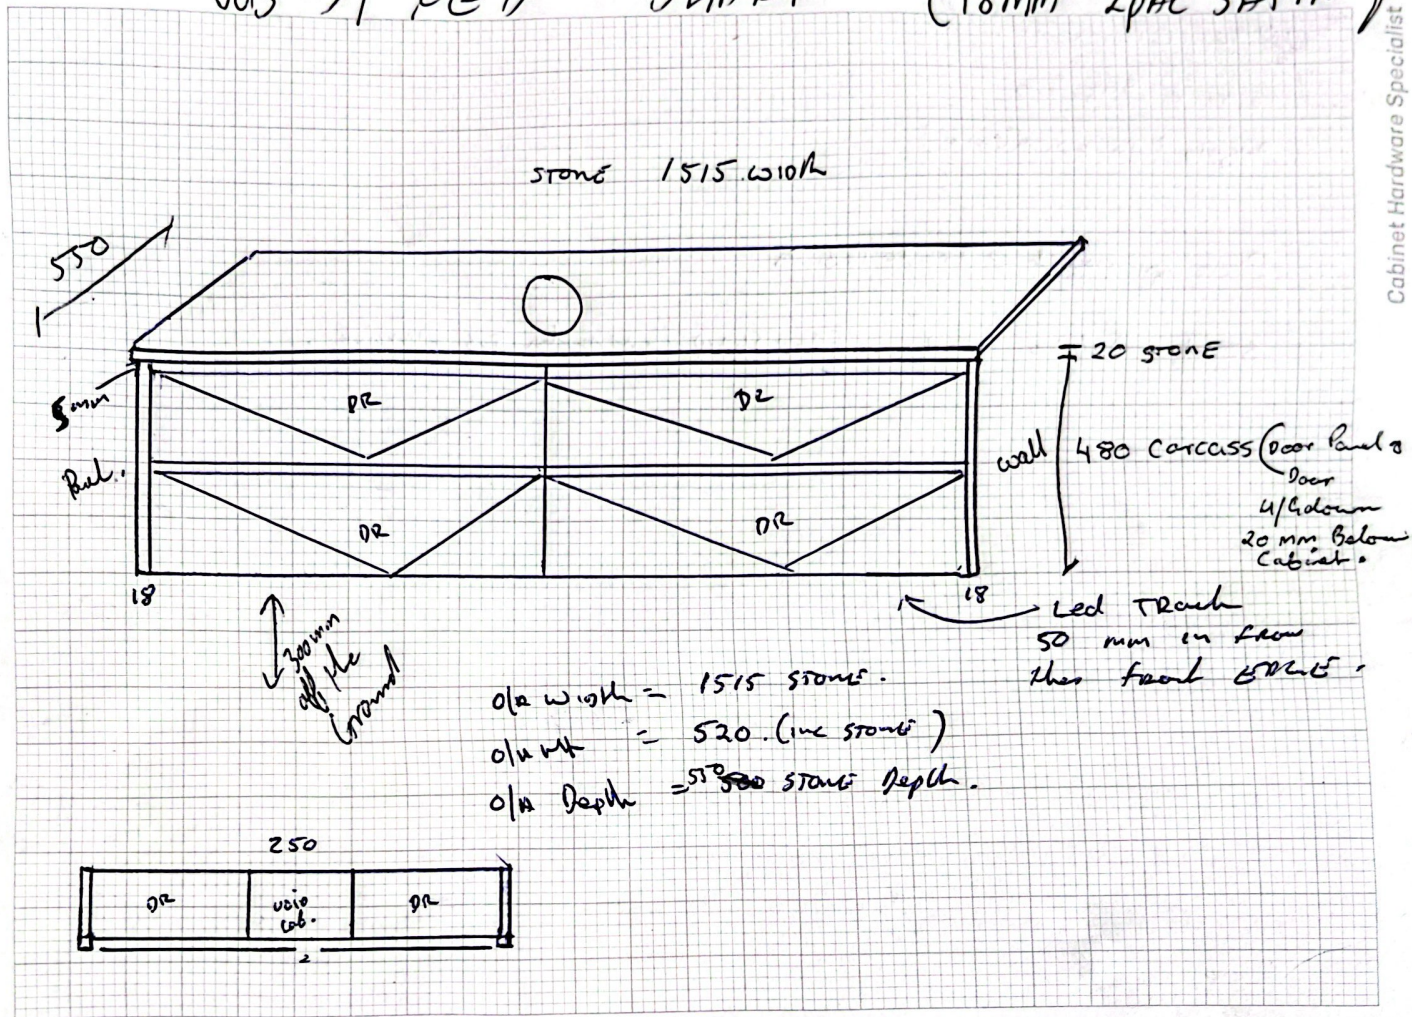 (18mm 2pac SATIN)
Cabinet Hardware Specialist
STONE 1515 WIDTH
550
20 STONE
5mm
DR
DR
wall
480 Carcass (Door Panel &
Door
Panel.
DR
DR
20 mm Below
Cabinet.
18
18
Led TRack
50 mm in from
the front EDGE.
300mm
off the
Ground
O/A Width = 1515 STONE.
O/A Ht = 520. (inc STONE)
O/A Depth = 550 STONE Depth.
250
DR
void
cab.
DR
2